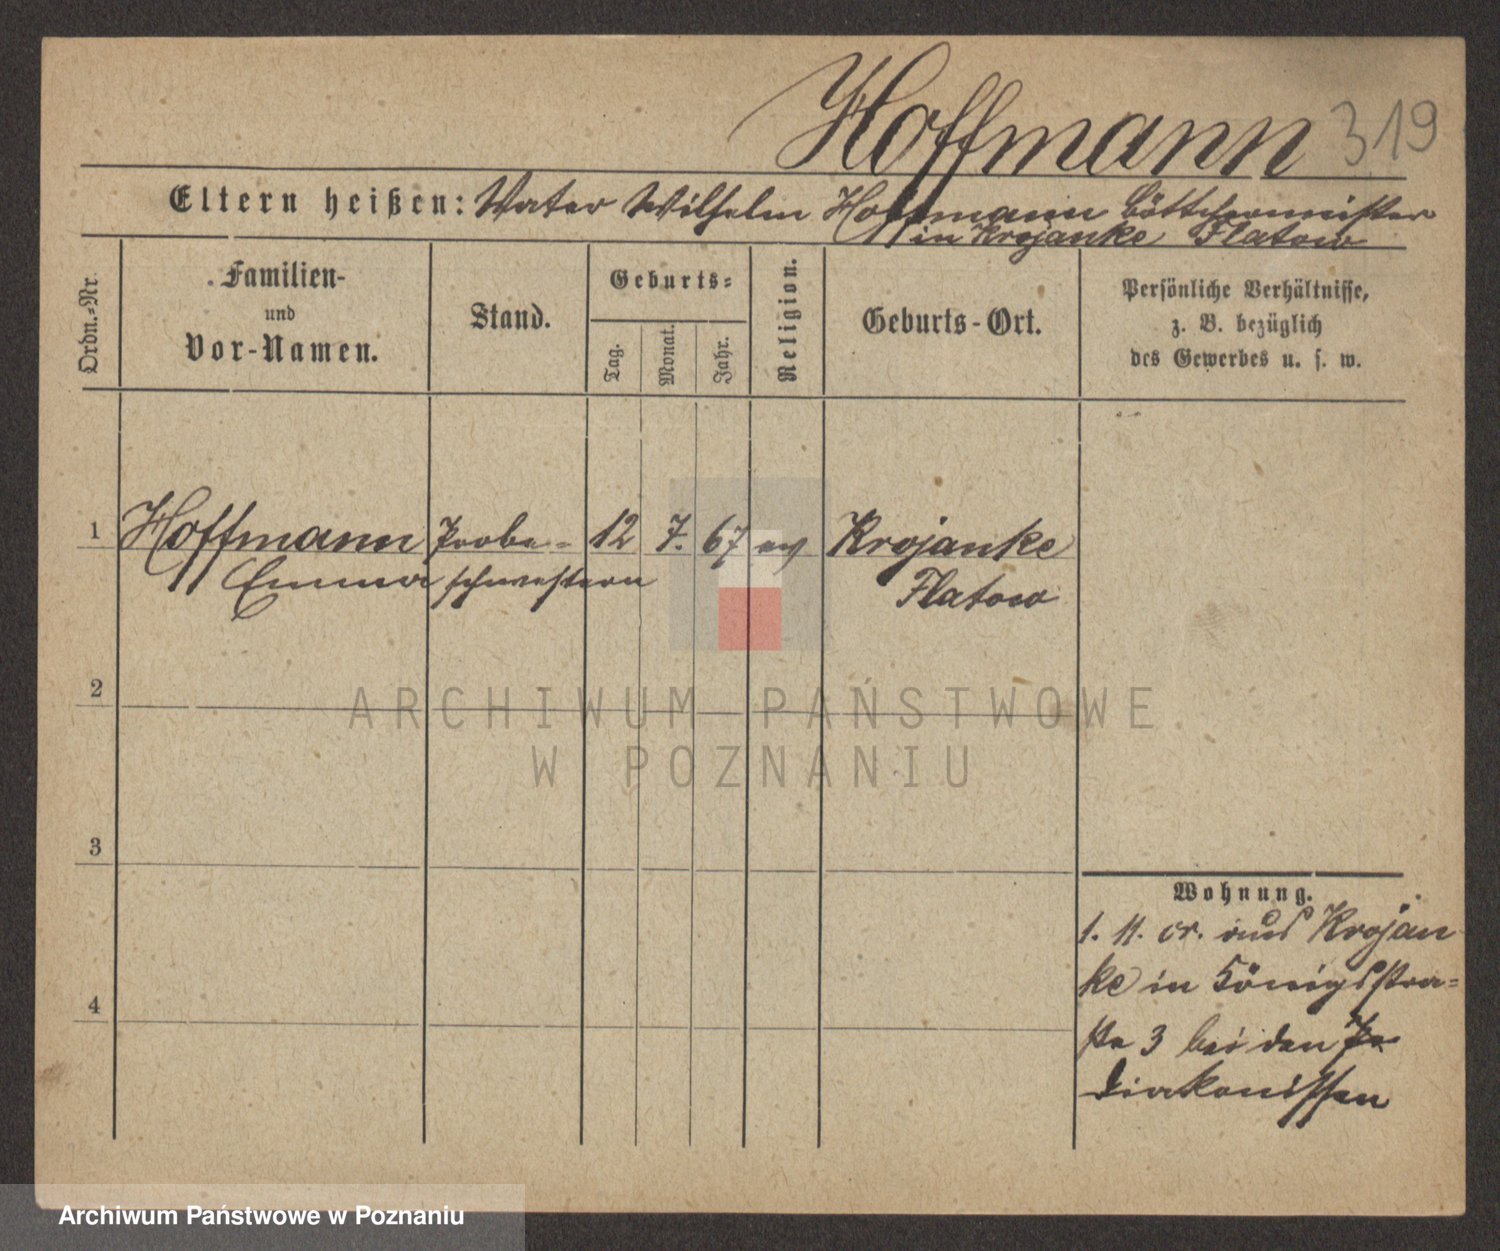 Hoffmann 319
Eltern heißen: Vater Wilhelm Hoffmann Böttchermeister
in Krojanke Flatow
Ordn.-Nr.
Familien-
und
Vor-Namen.
Stand.
Geburts-
Tag.
Monat.
Jahr.
Religion.
Geburts-Ort.
Persönliche Verhältnisse,
z. B. bezüglich
des Gewerbes u. s. w.
1 Hoffmann Probe- 12 7. 67 ev Krojanke
Emma schwestern Flatow
2
ARCHIWUM PAŃSTWOWE
W POZNANIU
3
Wohnung.
1. 11. cr. aus Krojan
ke in Königsstra-
4
ße 3 bei den
Diakonissen
Archiwum Państwowe w Poznaniu